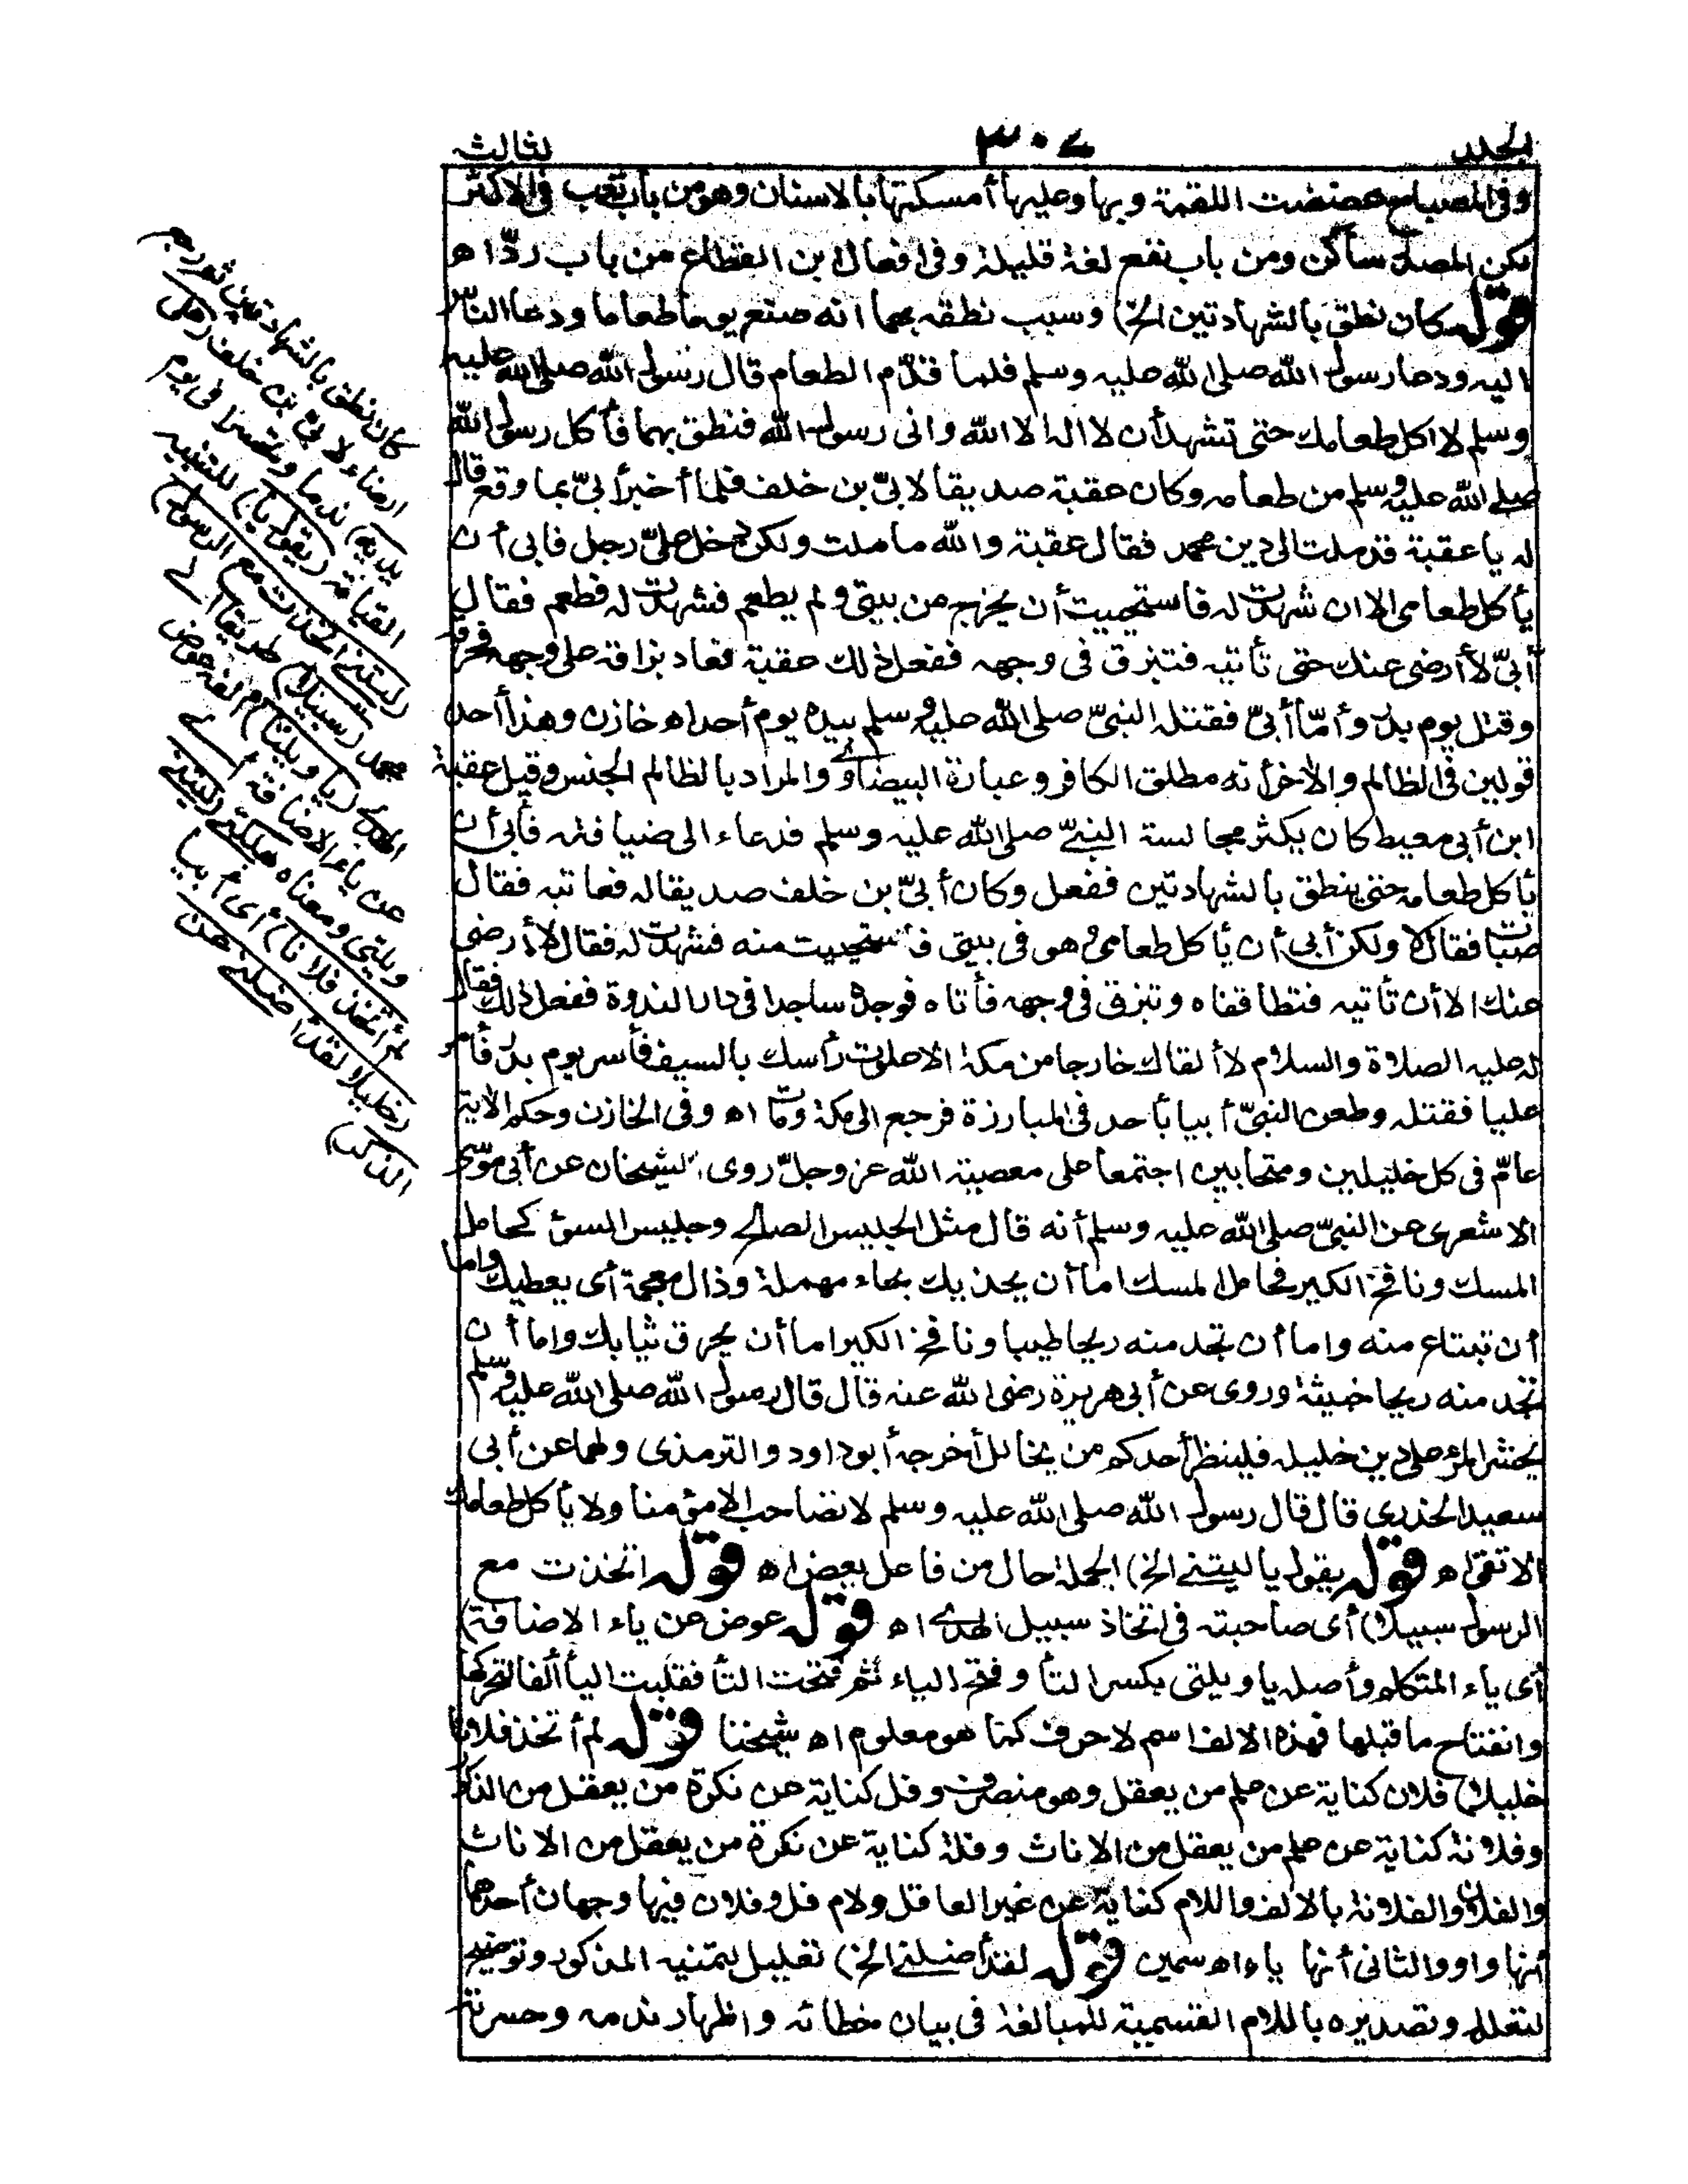 الجلد ٣٠٧ الثالث
وفى المصباح عضضت اللقمة وبها وعليها أمسكتها بالاسنان وهو من باب تعب فى الاكثر
لكن المصدر ساكن ومن باب نفع لغة قليلة وفى افعال ابن القطاع من باب ردّ اه
قوله كان نطق بالشهادتين الخ) وسبب نطقه بهما انه صنع يوما طعاما ودعا الناس
اليه ودعا رسول الله صلى الله عليه وسلم فلما قدّم الطعام قال رسول الله صلى الله عليه
وسلم لا اكل طعامك حتى تشهد أن لا اله الا الله وانى رسول الله فنطق بهما فأكل رسول الله
صلى الله عليه وسلم من طعامه وكان عقبة صديقا لابىّ بن خلف فلما أخبر أبىّ بما وقع قال
له يا عقبة قد ملت الى دين محمد فقال عقبة والله ما ملت ولكن دخل علىّ رجل فابى أن
يأكل طعامى الا ان شهدت له فاستحييت أن يخرج من بيتى ولم يطعم فشهدت له فطعم فقال
أبىّ لا أرضى عنك حتى تأتيه فتبزق فى وجهه ففعل ذلك عقبة فعاد بزاقه على وجهه فحرقه
وقتل يوم بدر وأمّا أبىّ فقتله النبىّ صلى الله عليه وسلم بيده يوم أحد اه خازن وهذا أحد
قولين فى الظالم والآخر أنه مطلق الكافر وعبارة البيضاوى والمراد بالظالم الجنس وقيل عقبة
ابن أبى معيط كان يكثر مجالسة النبىّ صلى الله عليه وسلم فدعاه الى ضيافته فأبى أن
يأكل طعامه حتى ينطق بالشهادتين ففعل وكان أبىّ بن خلف صديقا له فعاتبه فقال
صبأت فقال لا ولكن أبى أن يأكل طعامى وهو فى بيتى فاستحييت منه فشهدت له فقال لا أرضى
عنك الا أن تأتيه فتطأ قفاه وتبزق فى وجهه فأتاه فوجده ساجدا فى دار الندوة ففعل ذلك فقال
له عليه الصلاة والسلام لا ألقاك خارجا من مكة الا علوت رأسك بالسيف فأسر يوم بدر فأمر
عليا فقتله وطعن النبىّ أبيا بأحد فى المبارزة فرجع الى مكة ومات اه وفى الخازن وحكم الآية
عامّ فى كل خليلين ومتحابين اجتمعا على معصية الله عز وجلّ روى الشيخان عن أبى موسى
الاشعرى عن النبىّ صلى الله عليه وسلم أنه قال مثل الجليس الصالح وجليس السوء كحامل
المسك ونافخ الكير فحامل المسك اما أن يحذيك بحاء مهملة وذال معجمة أى يعطيك واما
أن تبتاع منه واما أن تجد منه ريحا طيبا ونافخ الكير اما أن يحرق ثيابك واما أن
تجد منه ريحا خبيثة وروى عن أبى هريرة رضى الله عنه قال قال رسول الله صلى الله عليه وسلم
يحشر المرء على دين خليله فلينظر أحدكم من يخالل أخرجه أبو داود والترمذى ولهما عن أبى
سعيد الخدرى قال قال رسول الله صلى الله عليه وسلم لا تصاحب الا مؤمنا ولا يأكل طعامك
الا تقى اه قوله يقول يا ليتنى الخ) الجملة حال من فاعل يعض اه قوله اتخذت مع
الرسول سبيلا) أى صاحبته فى اتخاذ سبيل الهدى اه قوله عوض عن ياء الاضافة)
أى ياء المتكلم وأصله يا ويلتى بكسر التأ وفتح الياء ثم فتحت التأ فقلبت اليأ ألفا لتحركها
وانفتاح ما قبلها فهذه الالف اسم لا حرف كما هو معلوم اه شيخنا قوله لم أتخذ فلانا
خليلا) فلان كناية عن علم من يعقل وهو منصرف وفل كناية عن نكرة من يعقل من الذكور
وفلانة كناية عن علم من يعقل من الاناث وفلة كناية عن نكرة من يعقل من الاناث
والفلان والفلانة بالالف واللام كناية عن غير العاقل ولام فل وفلان فيها وجهان أحدهما
أنها واو والثانى أنها ياء اه سمين قوله لقد أضلنى الخ) تعليل لتمنيه المذكور وتوضيح
لتعلله وتصديره باللام القسمية للمبالغة فى بيان خطائه واظهار ندمه وحسرته
كان نطق بالشهادتين ثم رجع
ارضاء لابىّ بن خلف (على
يديه) ندما وتحسرا فى يوم
القيامة (يقول يا) للتنبيه
(ليتنى اتخذت مع الرسول)
محمد (سبيلا) طريقا الى
الهدى (يا ويلتا) ألفه عوض
عن ياء الاضافة أى
ويلتى ومعناه هلكتى (ليتنى
لم أتخذ فلانا) أى أبيا
(خليلا لقد أضلنى عن
الذكر)